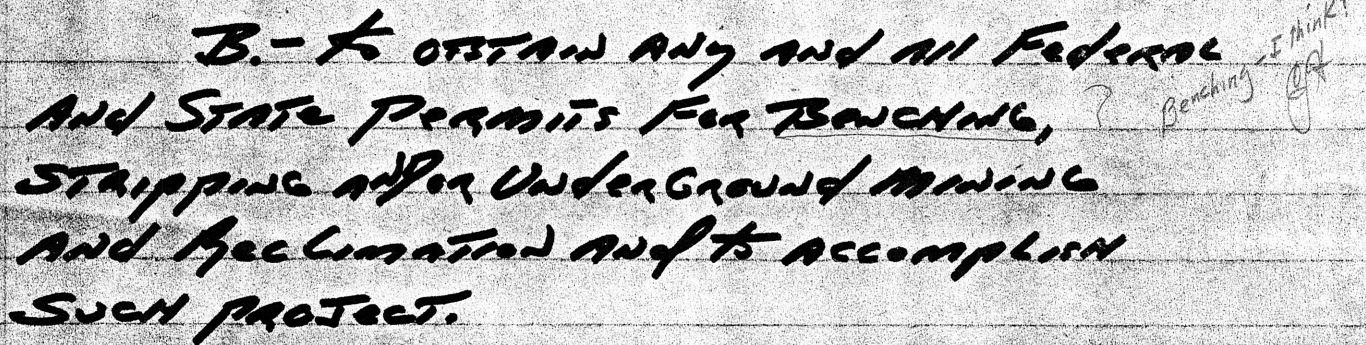 B.- to obtain any and all Federal
And State Permits For Benching,
?
Benching - I think!
Stripping and/or Underground Mining
And Reclimation And to accomplish
Such project.